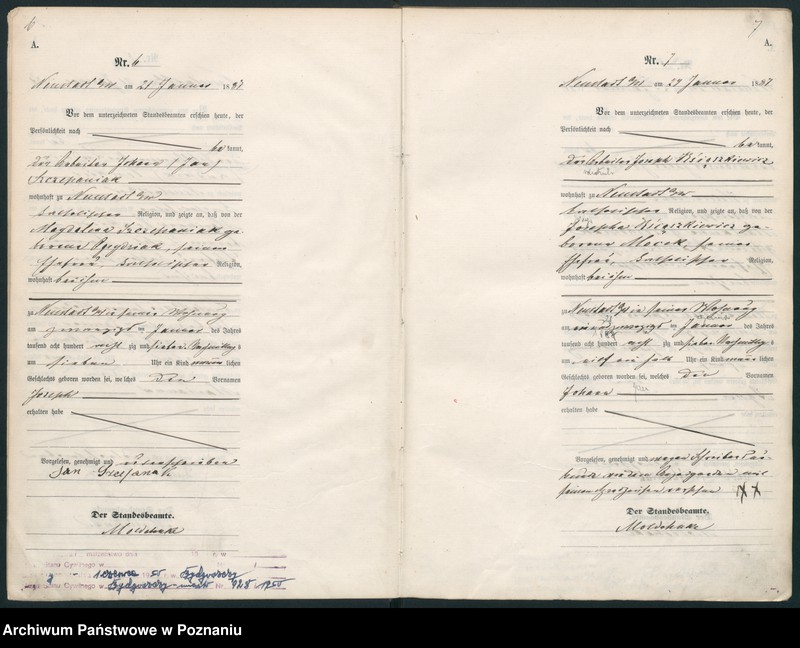 6
A.
Nr. 6
Neustadt a/W am 21 Januar 1887
Vor dem unterzeichneten Standesbeamten erschien heute, der
Persönlichkeit nach
bekannt,
der Arbeiter Johann (Jan)
Szczepaniak
wohnhaft zu Neustadt a/W
katholischer Religion, und zeigte an, daß von der
Magdalena Szczepaniak ge
borene seiner
Ehefrau, katholischer Religion,
wohnhaft bei ihm
zu Neustadt a/W in seiner Wohnung
am zwanzigsten Januar des Jahres
tausend acht hundert acht zig und sieben Vormittags
um sieben Uhr ein Kind männlichen
Geschlechts geboren worden sei, welches den Vornamen
Joseph
erhalten habe
Vorgelesen, genehmigt und unterschrieben
Jan Szczepaniak
Der Standesbeamte.
czerwca Bydgoszczy
Cywilnego w Bydgoszczy-miasto Nr. 928 1950
7
A.
Nr. 7
Neustadt a/W am 29 Januar 1887
Vor dem unterzeichneten Standesbeamten erschien heute, der
Persönlichkeit nach
bekannt,
der Arbeiter Joseph Książkiewicz
wohnhaft zu Neustadt a/W
katholischer Religion, und zeigte an, daß von der
Josepha Książkiewicz ge
borene Macek, seiner
Ehefrau, katholischer Religion,
wohnhaft bei ihm
zu Neustadt a/W in seiner Wohnung
am zwanzigsten Januar des Jahres
tausend acht hundert acht zig und sieben Vormittags
um ein halb Uhr ein Kind männlichen
Geschlechts geboren worden sei, welches den Vornamen
Johann
erhalten habe
Vorgelesen, genehmigt und wegen Schreibens
von dem Anzeigenden mit
seinen Handzeichen versehen XXX
Der Standesbeamte.
Archiwum Państwowe w Poznaniu